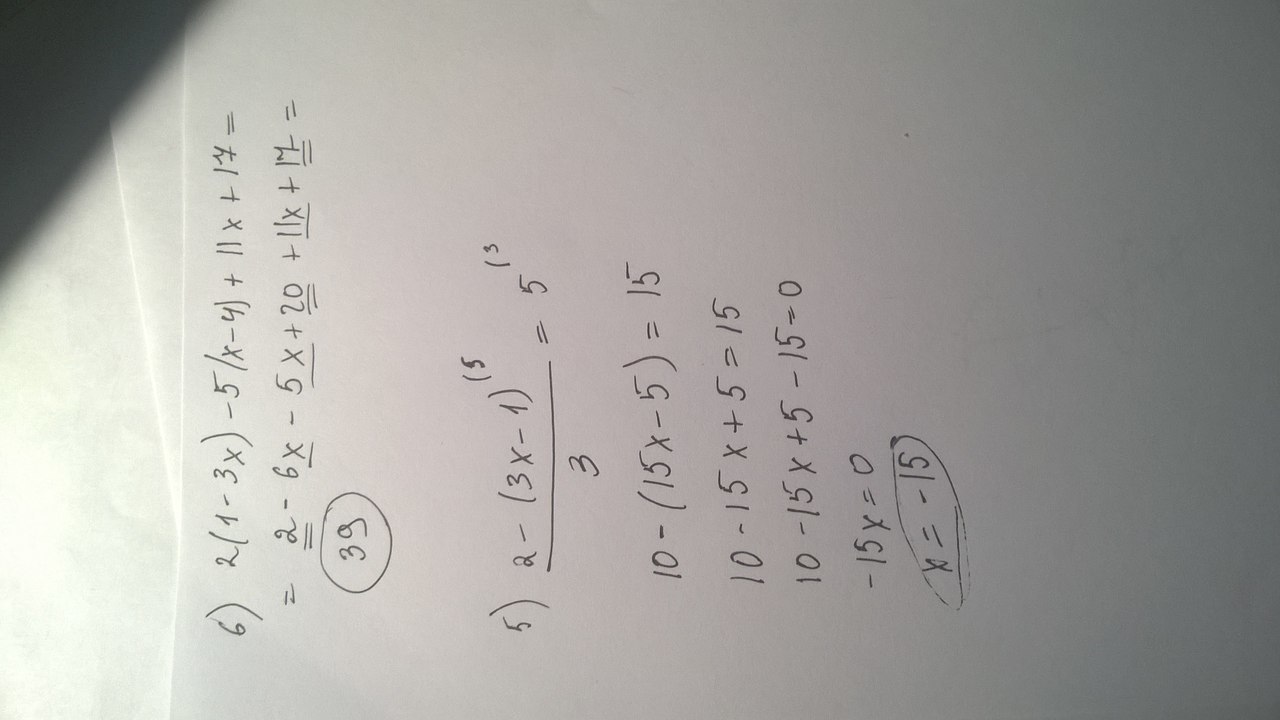 6) 2(1-3x)-5(x-4)+11x+17=
= 2-6x-5x+20+11x+17=
39
5) 2-(3x-1) (5 = 5 (3
3
10-(15x-5)=15
10-15x+5=15
10-15x+5-15=0
-15x=0
x=-15